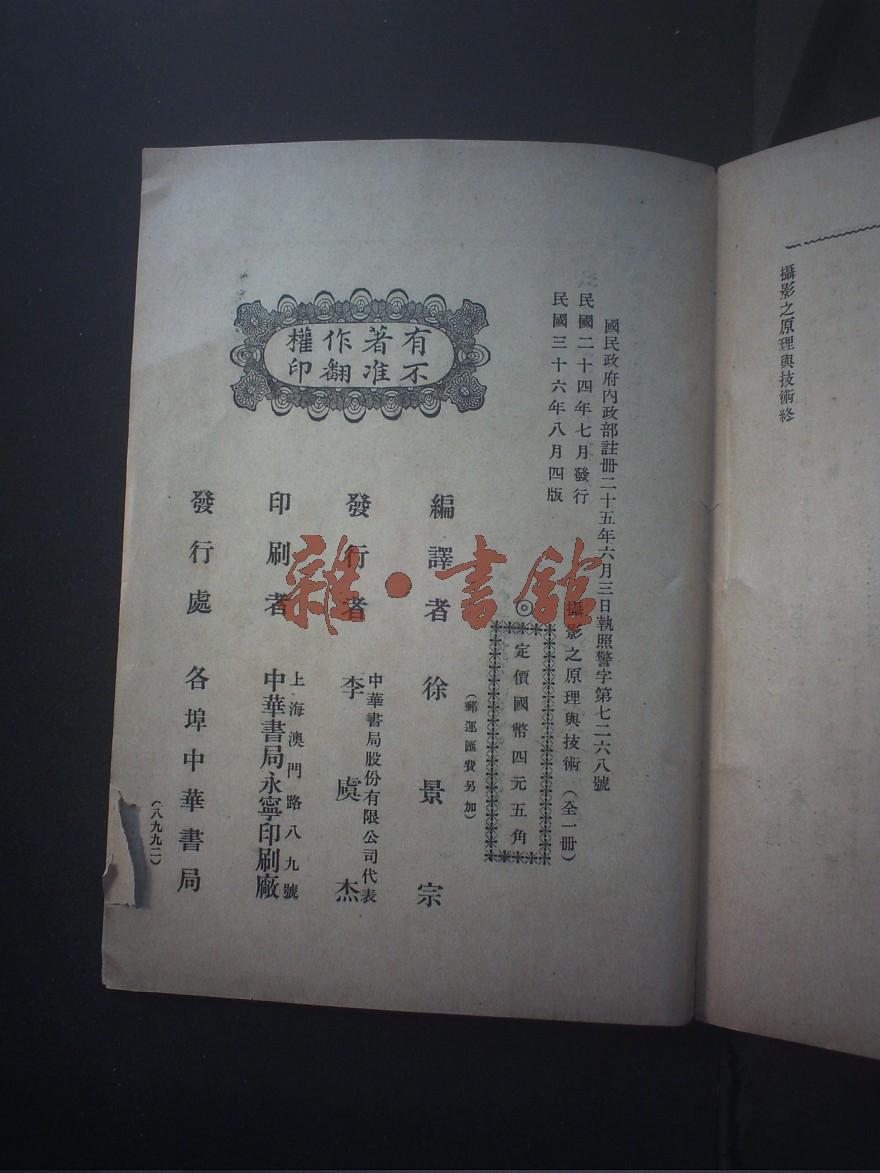 攝影之原理與技術終
國民政府內政部註冊二十五年六月三日執照警字第七二六八號
民國二十四年七月發行
民國三十六年八月四版
攝影之原理與技術（全一冊）
◎定價國幣四元五角
（郵運匯費另加）
有著作權
不准翻印
編譯者 徐景宗
發行者 中華書局股份有限公司代表
李虞杰
印刷者 上海澳門路八九號
中華書局永寧印刷廠
發行處 各埠中華書局
（八九九二）
雜·書館